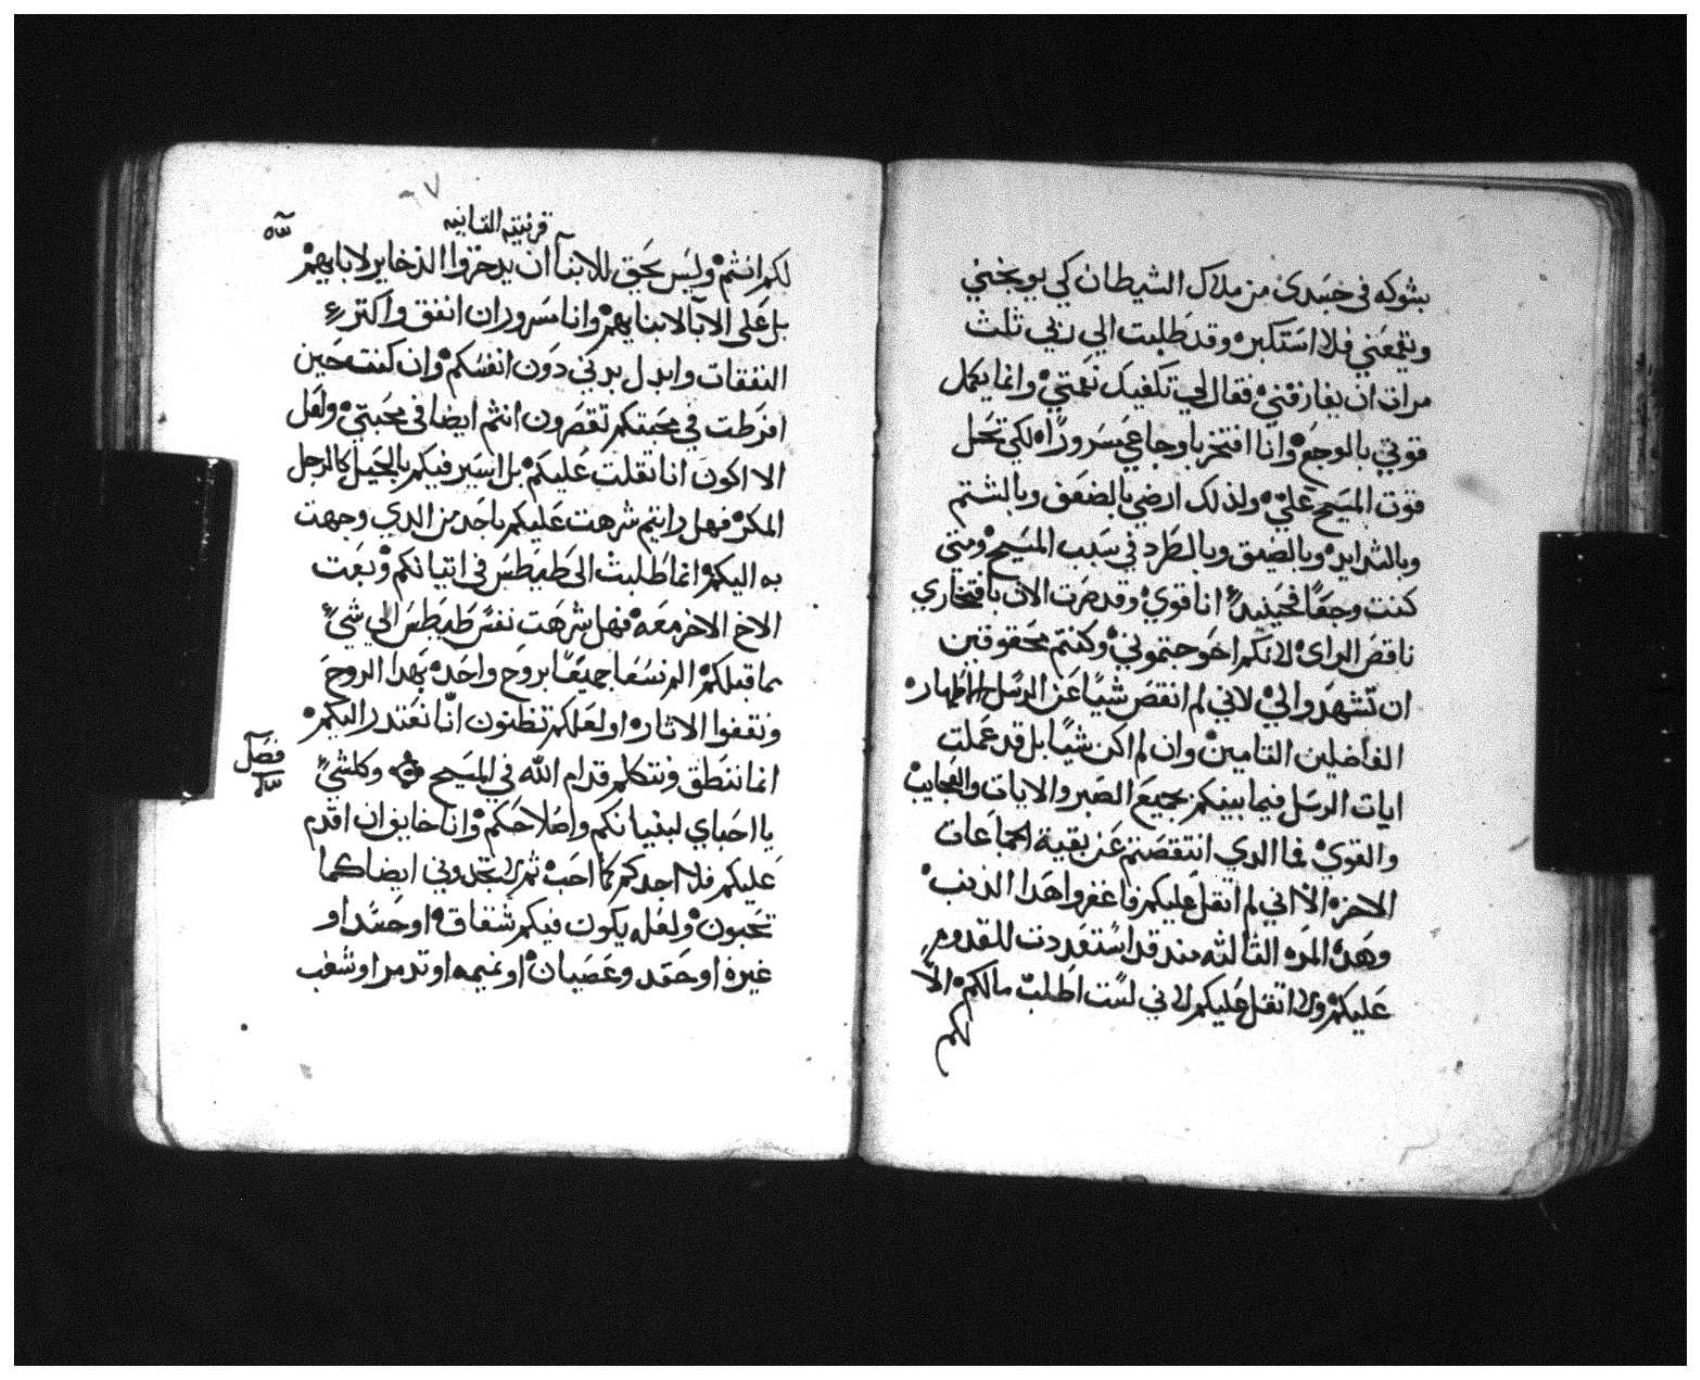 بشوكه في جسدي من ملاك الشيطان كي يوبخني
ويقمعني فلا استكبر وقد طلبت الي ربي ثلث
مرات ان يفارقني فقال لي تكفيك نعمتي وانما يكمل
قوتي بالوجع وانا افتخر باوجاعي مسرورًا لكي تحل
قوت المسيح علي ولذلك ارضي بالضعف وبالشتم
وبالشدايد وبالضيق وبالطرد في سبب المسيح ومتي
كنت وجعًا فحينيدٍ انا قوي وقد صرت الان بافتخاري
ناقص الراي لانكم احوجتموني وكنتم محقوقين
ان تشهدوا لي لاني لم انقص شيًا عن الرسل الاطهار
الفاضلين التامين وان لم اكن شيًا بل قد عملت
ايات الرسل فيما بينكم بجميع الصبر والايات والعجايب
والقوي فما الدي انتقصتم عن بقية الجماعات
الاخره الا اني لم اثقل عليكم فاغفروا هدا الدنب
وهده المره الثالثه مند قد استعددت للقدوم
عليكم ولا اثقل عليكم لاني لست اطلب مالكم الا
لكم
قرنتيه التانيه
لكم انتم وليس يحق للابنآ ان يدخروا الدخاير لابايهم
بل على الابآ لابنايهم وانا مسرور ان انفق واكتر
النفقات وابدل بدني دون انفسكم وان كنت حين
افرطت في محبتكم تقصرون انتم ايضا في محبتي ولعل
الا اكون انا تقلت عليكم بل اسير فيكم بالجميل كالرجل
المكر فهل رايتم شرهت عليكم باحد من الدي وجهت
به اليكم انما طلبت الى طيطس في اتيانكم وبعت
الاخ الاخر معه فهل شرهت نفس طيطس الي شيٍ
مما قبلكم الم نسعا جميعًا بروح واحده بهدا الروح
ونقفوا الاثار او لعلكم تظنون انّا نعتدر اليكم
انما ننطق ونتكلم قدام الله في المسيح وكلشيٍ
فصل
يا احباي لبنيانكم واصلاحكم وانا خايف ان اقدم
عليكم فلا اجدكم كما احب ثم لا تجدوني ايضا كما
تحبون ولعله يكون فيكم شقاق او حسد او
غيره او حقد وعصيان او نميمه او تدمر او شغب